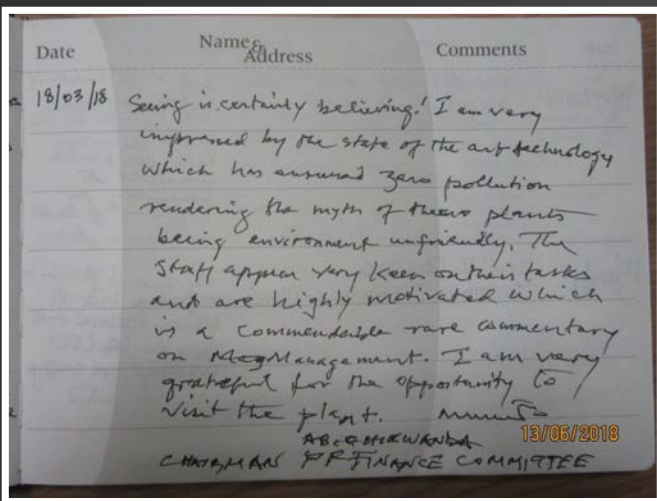 Date Name & Address Comments
18/03/18 Seeing is certainly believing! I am very
impressed by the state of the art technology
which has ensured zero pollution
rendering the myth of these plants
being environment unfriendly. The
staff appear very keen on their tasks
and are highly motivated which
is a commendable rare commentary
on Management. I am very
grateful for the opportunity to
visit the plant.
13/06/2018
CHAIRMAN FINANCE COMMITTEE